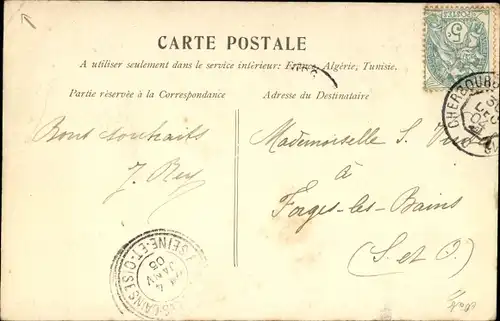 CARTE POSTALE
A utiliser seulement dans le service intérieur: France, Algérie, Tunisie.
Partie réservée à la Correspondance
Adresse du Destinataire
Bons souhaits
J. Rey
Mademoiselle S.
à
Forges-les-Bains
(S. et O.)
CHERBOURG
DEC
SEINE-ET-OISE
4
JANV
05